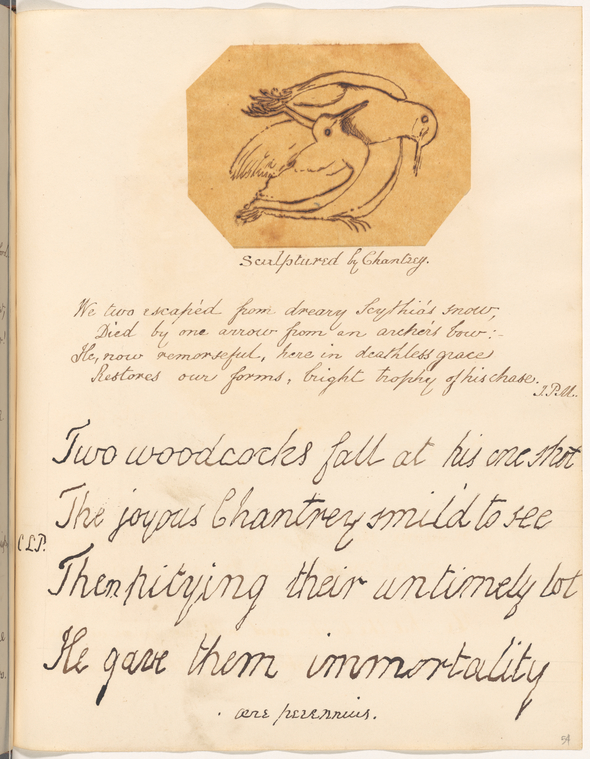 Sculptured by Chantrey.
We two escap'd from dreary Scythia's snow,
Died by one arrow from an archer's bow:-
He, now remorseful, here in deathless grace
Restores our forms, bright trophy of his chase.
J.P.M.
Two woodcocks fall at his one shot
The joyous Chantrey smil'd to see
C L P.
Then pitying their untimely lot
He gave them immortality
ære perennius.
54